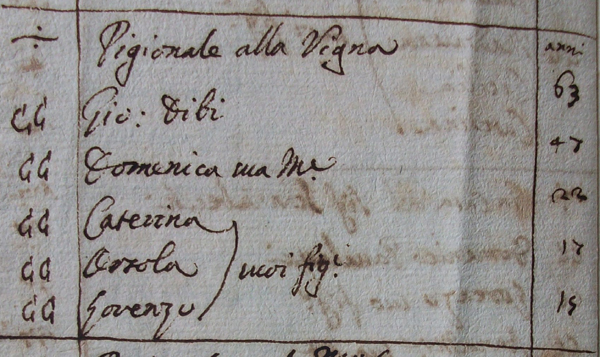 ÷ Pigionale alla Vigna anni
GG Gio: Dibi 63
GG Domenica sua M.e 47
GG Caterina 22
GG Orsola suoi fig.i 17
GG Lorenzo 15